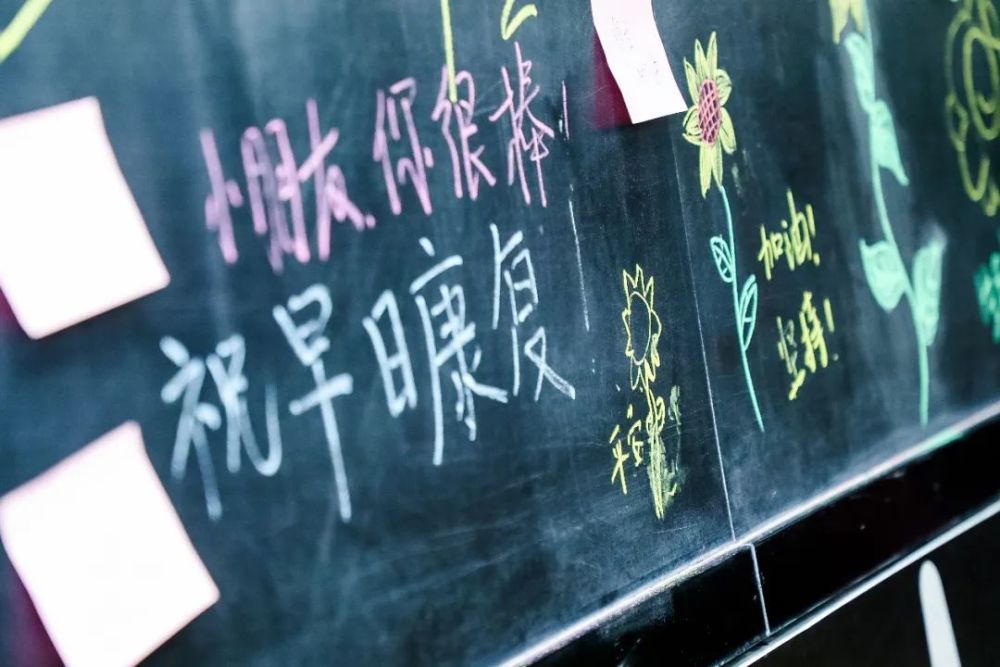 小朋友.你很棒!
祝早日康复
加油!
坚持!
平安